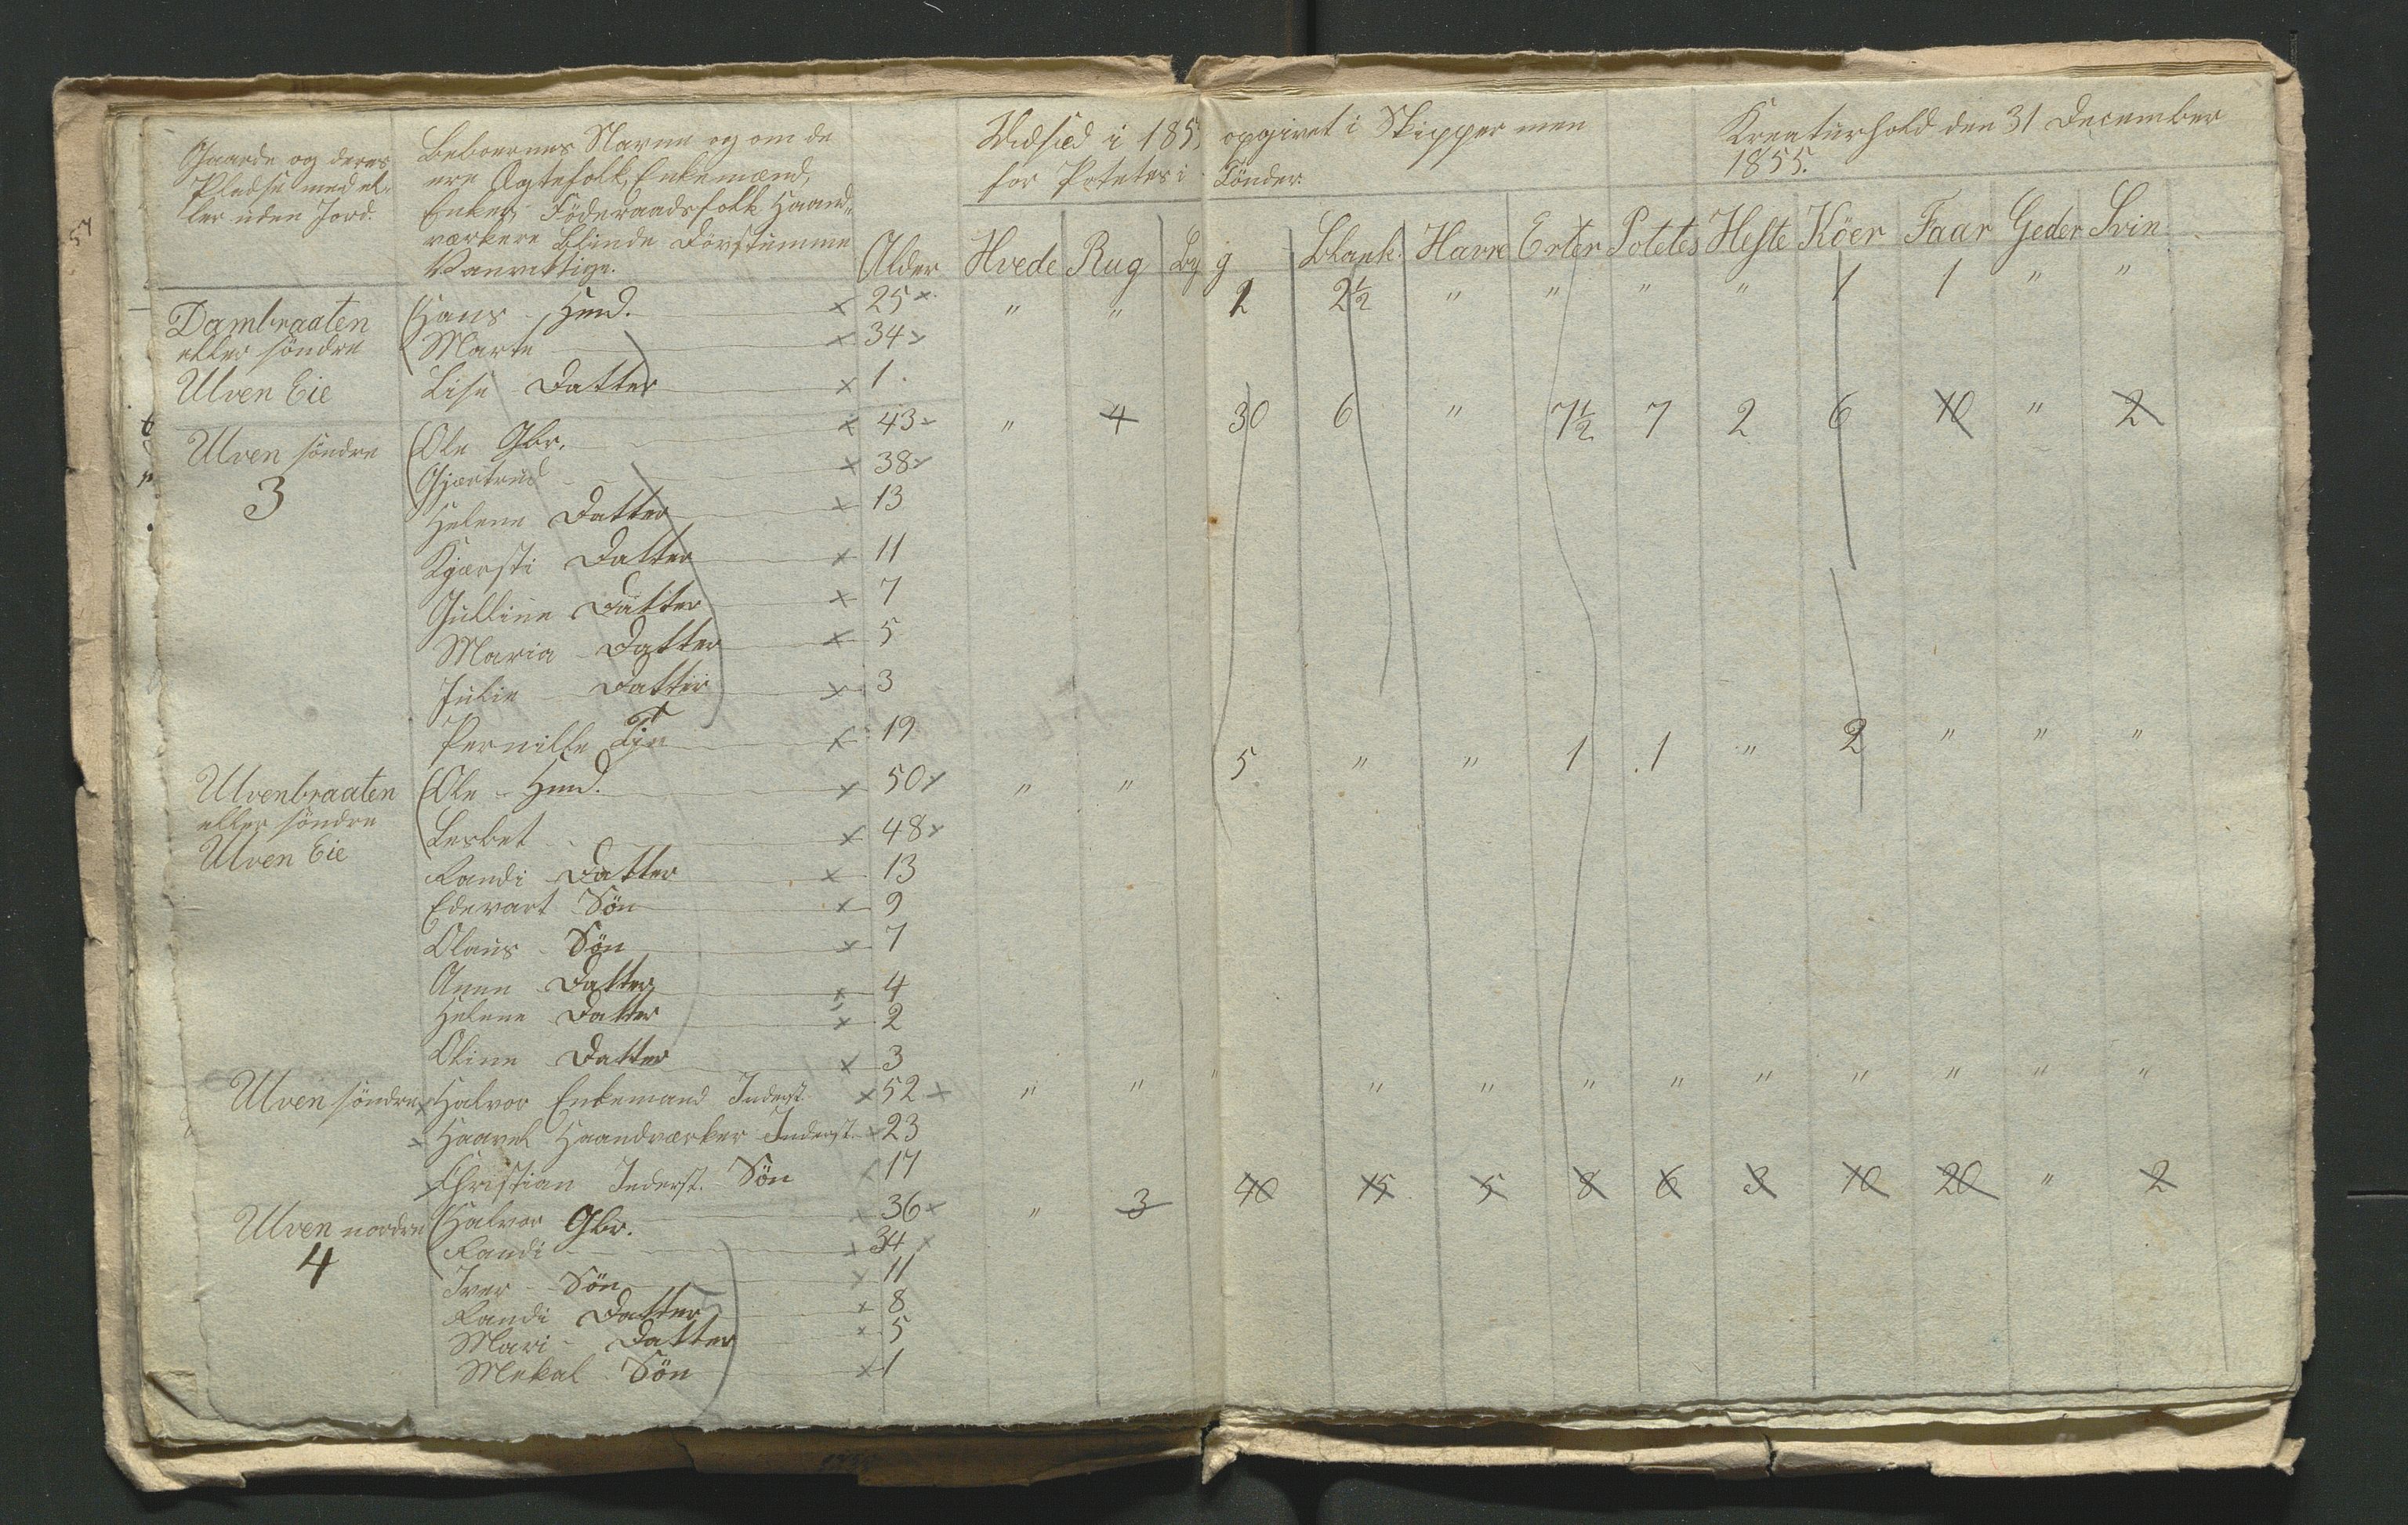 Gaarde og deres
Pladse med el-
ler uden Jord.
Beboernes Navne og om de
ere Ægtefolk, Enkemænd,
Enker, Föderaadsfolk Haand„
værkere Blinde Dövstumme
Vanvittige.
Alder
Udsæd i 1855 opgivet i Skipper men
for Potetes i Tönder.
Kreaturhold den 31 December
1855.
Hvede Rug Byg Blank. Havre Erter Potetes Heste Köer Faar Geder Svin
Dambraaten Hans - Hmd. x 25 x " " 2 2½ " " " " 1 1 " "
eller söndre Marte x 34 x
Ulven Eie Lise Datter x 1
Ulven söndre Ole Gbr. x 43 x " 4 30 6 " 7½ 7 2 6 10 " 2
3 Gjærtrud x 38 x
Helene Datter x 13
Kjærsti Datter x 11
Julline Datter x 7
Maria - Datter x 5
Julie - Datter x 3
Pernille Tje x 19
Ulvenbraaten Ole - Hmd. x 50 x " " 5 " " 1 1 " 2 " " "
eller söndre Lesbet x 48 x
Ulven Eie Randi Datter x 13
Edevart Sön x 9
Olaus - Sön x 7
Anne Datter x 4
Helene Datter x 2
Oline Datter x 3
Ulven söndre x Halvor Enkemand Inderst. x 52 x " " " " " " " " " " " "
x Haavel Haandværker Inderst. x 23
x Christian Inderst. Sön x 17
Ulven nordre Halvor Gbr. x 36 x " 3 40 15 5 8 6 3 10 20 " 2
4 Randi x 34 x
Iver - Sön x 11
Randi Datter x 8
Mari - Datter x 5
Mekal - Sön x 1